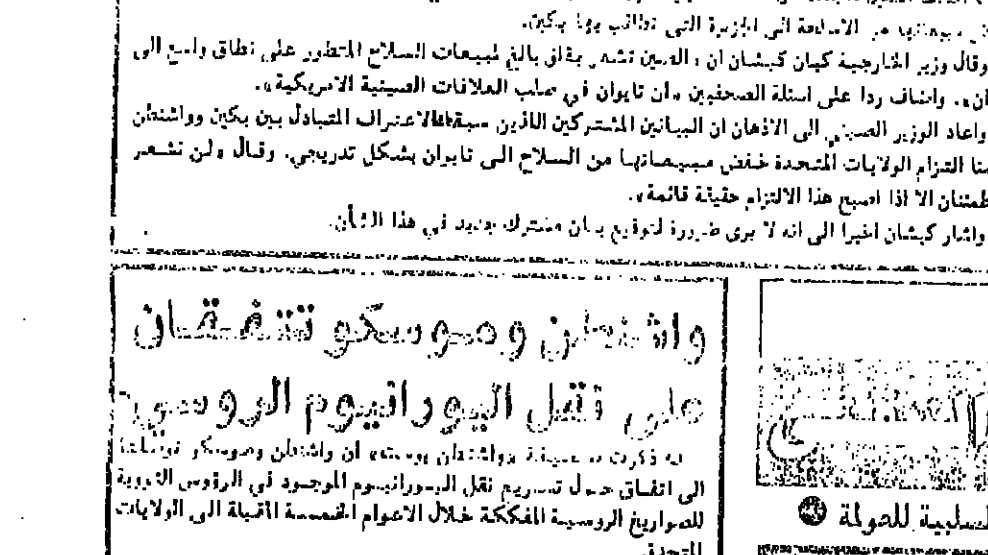 الاسلحة الى الجزيرة التي تطالب بها بكين.
وقال وزير الخارجية كيان كيشان ان ، الصين تشعر بقلق بالغ لمبيعات السلاح المتطور على نطاق واسع الى
ان». واضاف ردا على اسئلة الصحفيين «ان تايوان في صلب العلاقات الصينية الامريكية».
واعاد الوزير الصيني الى الاذهان ان البيانين المشتركين اللذين سبقا الاعتراف المتبادل بين بكين وواشنطن
منا التزام الولايات المتحدة خفض مبيعاتها من السلاح الى تايوان بشكل تدريجي. وقال «لن نشعر
طمئنان الا اذا اصبح هذا الالتزام حقيقة قائمة».
واشار كيشان اخيرا الى انه لا يرى ضرورة لتوقيع بيان مشترك جديد في هذا الشأن.
واشنطن وموسكو تتفقان
على نقل اليورانيوم الروسي
ذكرت صحيفة «واشنطن بوست» ان واشنطن وموسكو توصلتا
الى اتفاق حول تسريع نقل اليورانيوم الموجود في الرؤوس النووية
للصواريخ الروسية المفككة خلال الاعوام الخمسة المقبلة الى الولايات
المتحدة.
لسلبية للعولمة